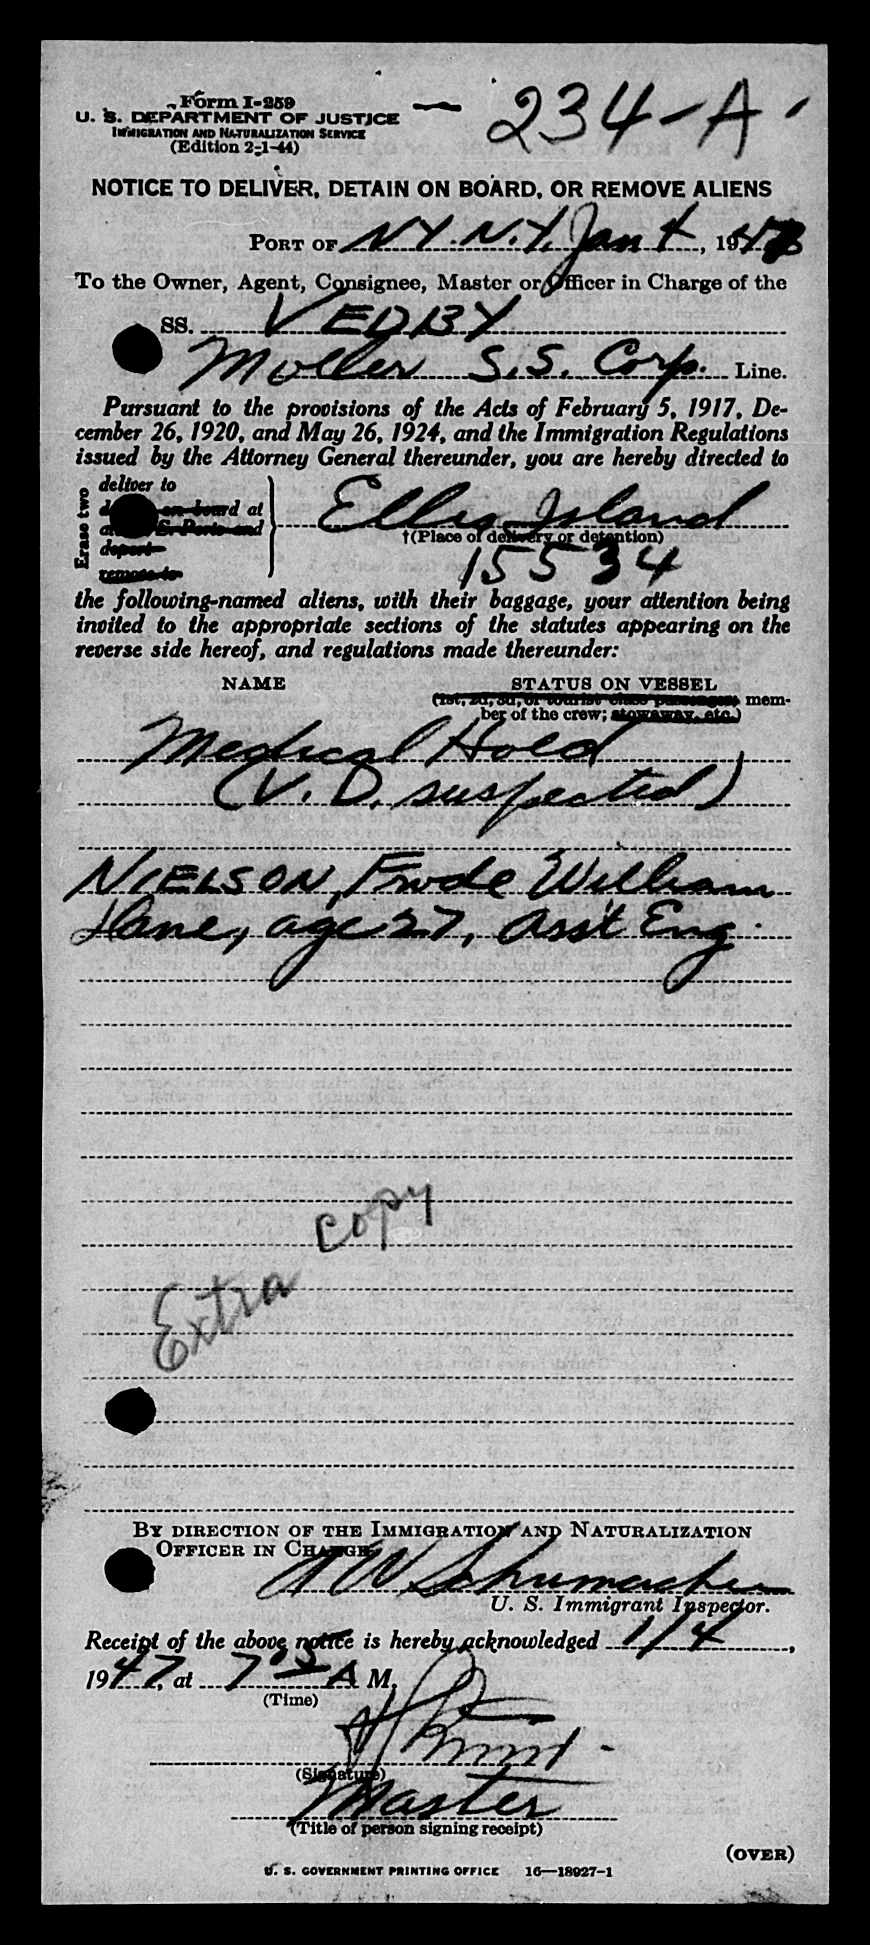 Form I-259
U. S. DEPARTMENT OF JUSTICE
IMMIGRATION AND NATURALIZATION SERVICE
(Edition 2-1-44)
234-A
NOTICE TO DELIVER, DETAIN ON BOARD, OR REMOVE ALIENS
PORT OF NY. N.Y. Jan 4, 1947
To the Owner, Agent, Consignee, Master or Officer in Charge of the
SS. VEDBY
Moller S.S. Corp. Line.
Pursuant to the provisions of the Acts of February 5, 1917, De-
cember 26, 1920, and May 26, 1924, and the Immigration Regulations
issued by the Attorney General thereunder, you are hereby directed to
Erase two
deliver to
on board at
U. S. Ports and
deport
remove to
Ellis Island
†(Place of delivery or detention)
15534
the following-named aliens, with their baggage, your attention being
invited to the appropriate sections of the statutes appearing on the
reverse side hereof, and regulations made thereunder:
NAME STATUS ON VESSEL
(1st, 2d, 3d, or tourist class passenger; mem-
ber of the crew; stowaway, etc.)
Medical Hold
(V. D. suspected)
NIELSON, Frode William
Dane, age 27, Ass't Eng.
Extra copy
BY DIRECTION OF THE IMMIGRATION AND NATURALIZATION
OFFICER IN CHARGE.
Schumacher
U. S. Immigrant Inspector.
Receipt of the above notice is hereby acknowledged 1/4,
1947, at 7 05 A M.
(Time)
(Signature)
Master
(Title of person signing receipt)
(OVER)
U. S. GOVERNMENT PRINTING OFFICE 16—18927-1